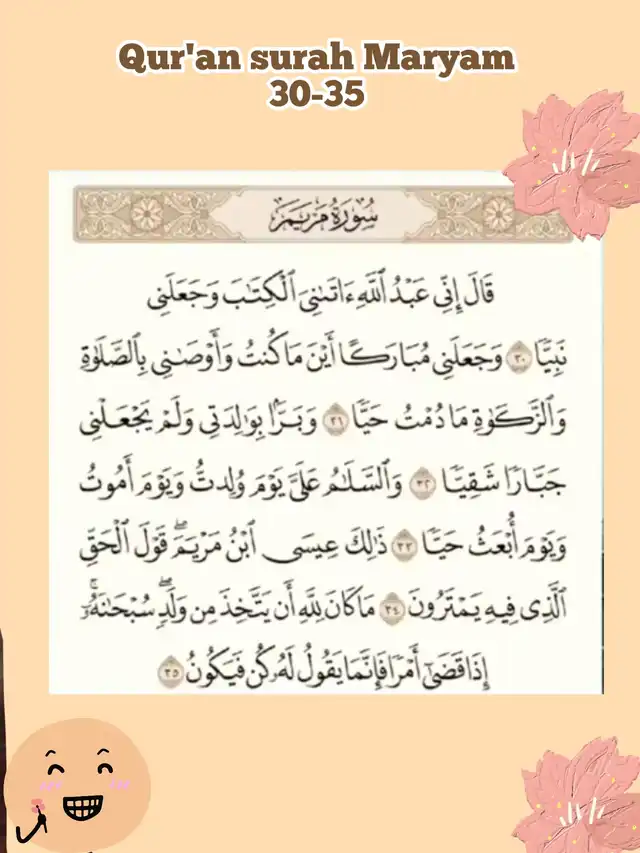 Qur'an surah Maryam
30-35
سُورَةُ مَرْيَمَ
قَالَ إِنِّى عَبْدُ ٱللَّهِ ءَاتَىٰنِىَ ٱلْكِتَٰبَ وَجَعَلَنِى
نَبِيًّا ٣٠ وَجَعَلَنِى مُبَارَكًا أَيْنَ مَا كُنتُ وَأَوْصَٰنِى بِٱلصَّلَوٰةِ
وَٱلزَّكَوٰةِ مَا دُمْتُ حَيًّا ٣١ وَبَرًّۢا بِوَٰلِدَتِى وَلَمْ يَجْعَلْنِى
جَبَّارًا شَقِيًّا ٣٢ وَٱلسَّلَٰمُ عَلَىَّ يَوْمَ وُلِدتُّ وَيَوْمَ أَمُوتُ
وَيَوْمَ أُبْعَثُ حَيًّا ٣٣ ذَٰلِكَ عِيسَى ٱبْنُ مَرْيَمَ ۖ قَوْلَ ٱلْحَقِّ
ٱلَّذِى فِيهِ يَمْتَرُونَ ٣٤ مَا كَانَ لِلَّهِ أَن يَتَّخِذَ مِن وَلَدٍ ۖ سُبْحَٰنَهُۥٓ ۚ
إِذَا قَضَىٰٓ أَمْرًا فَإِنَّمَا يَقُولُ لَهُۥ كُن فَيَكُونُ ٣٥